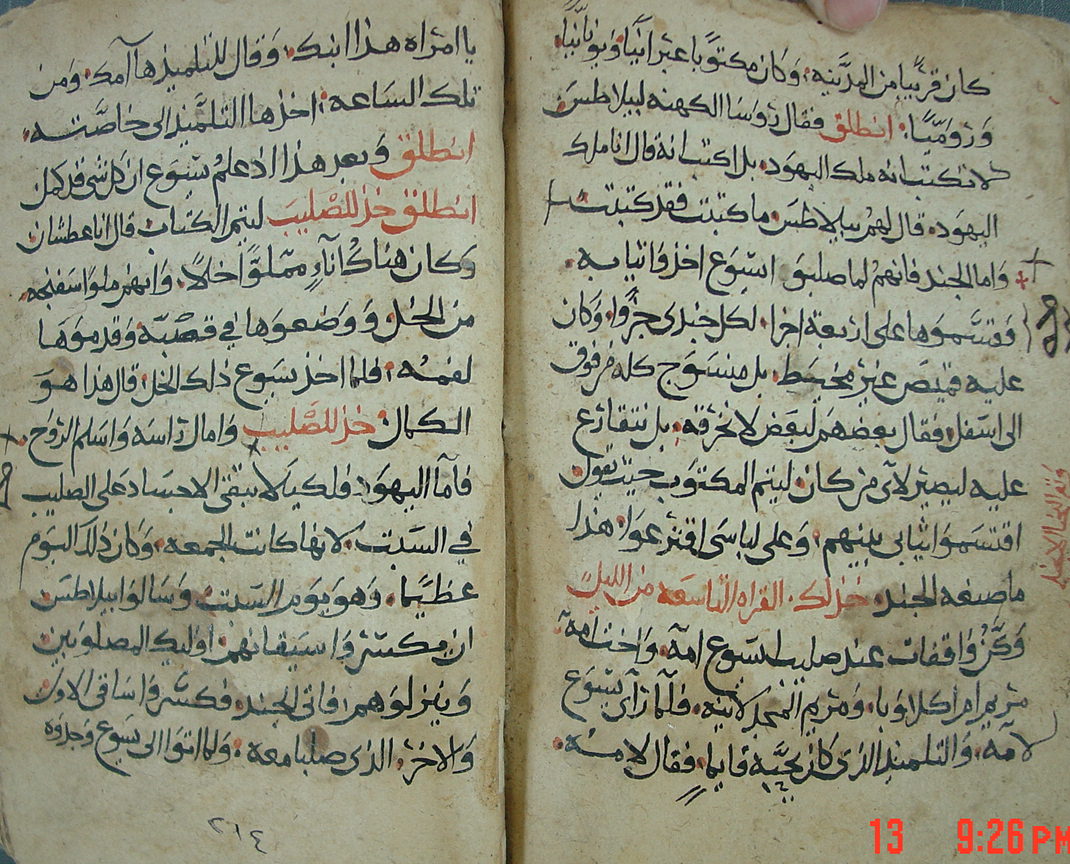 كان قريبًا من المدينه، وكان مكتوبا عبرانيًا ويونانيًا
وروميًا. انطلق فقال روسا الكهنه لبيلاطس
لا تكتب انه ملك اليهود. بل اكتب انه قال انا ملك
اليهود. قال لهم بيلاطس ما كتبت فقد كتبت
واما الجند فانهم لما صلبو ايسوع اخذوا ثيابه
وقسموها على اربعة اجزا. لكل جندي جزوا. وكان
عليه قميص غير مخيط. بل منسوج كله من فوق
الى اسفل. فقال بعضهم لبعض لا نخرقه. بل نتقارع
عليه ليصير لاى من كان. ليتم المكتوب حيث يقول
اقتسموا ثيابي بينهم، وعلى لباسى اقترعوا. هذا
ما صنعه الجند. خذ لك. القراه التاسعه من الليل
وكن واقفات عند صليب يسوع امه. واخت امه
مريم ام اكلاوبا. ومريم المجدلانيه. فلما راى يسوع
لامه. والتلميذ الذى كان يحبه قايما. فقال لامه
يا امراه هذا ابنك. وقال للتلميذ ها امك. ومن
تلك الساعه. اخذها التلميذ الى خاصته.
انطلق وبعد هذا اذ علم يسوع ان كل شى قد كمل
انطلق خذ للصليب ليتم الكتاب قال انا عطشان
وكان هناك اناء مملوا خلا. وانهم ملوا اسفنجه
من الخل ووضعوها في قصبة وقدموها
لفمه. فلما اخذ يسوع ذلك الخل. قال هذا هو
الكمال. خذ للصليب وامال راسه واسلم الروح.
فاما اليهود فلكيلا تبقى الاجساد على الصليب
في السبت. لانها كانت الجمعه. وكان ذلك اليوم
عظيما. وهو يوم السبت. وسالوا بيلاطس
ان يكسروا سيقانهم. اوليك المصلوبين
وينزلوهم. فاتى الجند. فكسروا ساقى الاول
والاخر. الذى صلبا معه. ولما اتوا الى يسوع وجدوه
٢١٤
13 9:26 PM